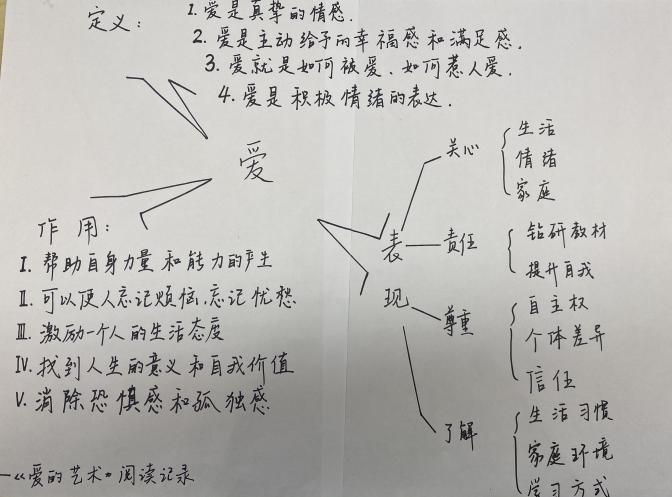 定义：
1. 爱是真挚的情感.
2. 爱是主动给予的幸福感和满足感.
3. 爱就是如何被爱、如何惹人爱.
4. 爱是积极情绪的表达.
爱
作用：
I. 帮助自身力量和能力的产生
II. 可以使人忘记烦恼、忘记忧愁
III. 激励一个人的生活态度
IV. 找到人生的意义和自我价值
V. 消除恐惧感和孤独感
表现
关心
生活
情绪
家庭
责任
钻研教材
提升自我
尊重
自主权
个体差异
信任
了解
生活习惯
家庭环境
学习方式
—《爱的艺术》阅读记录